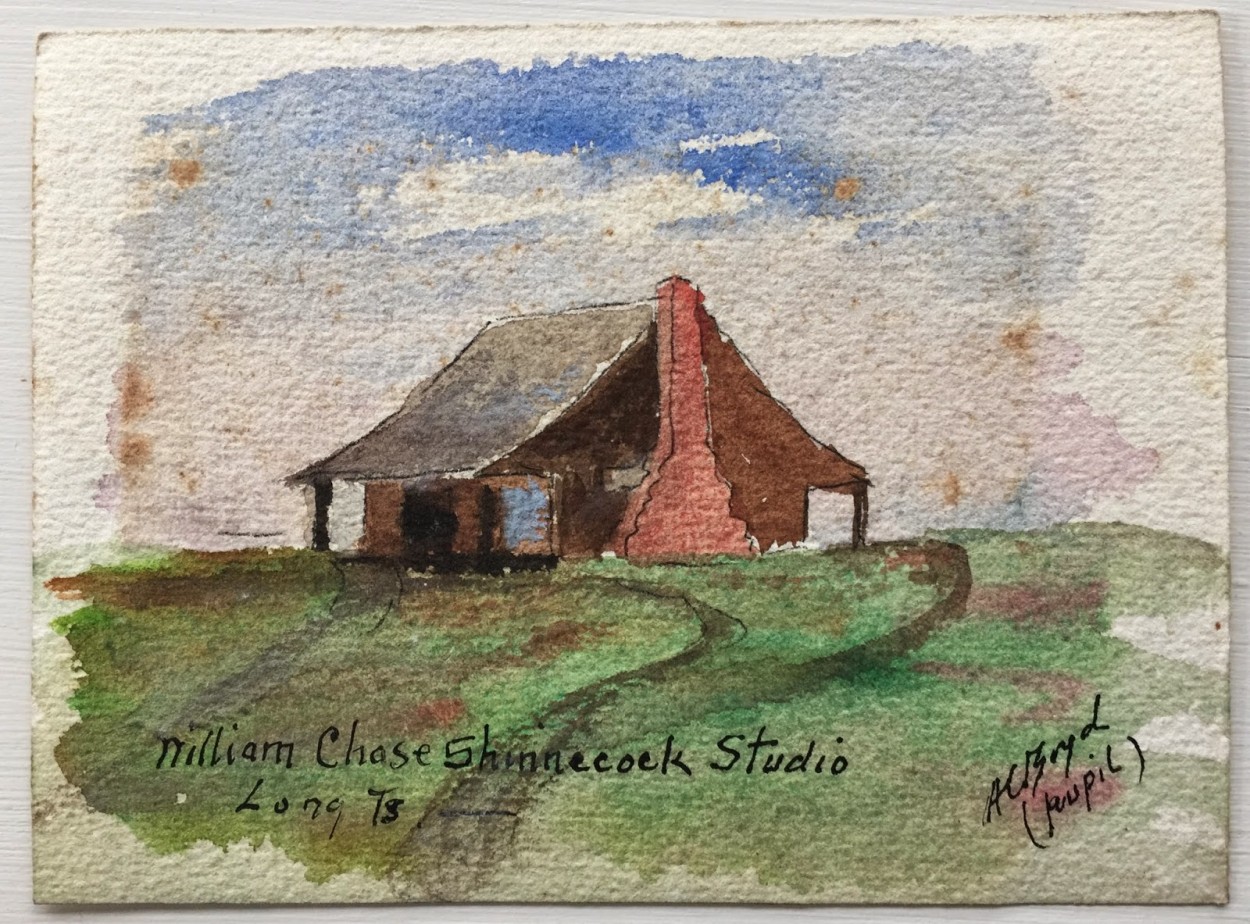 William Chase Shinnecock Studio
Long Is
(pupil)